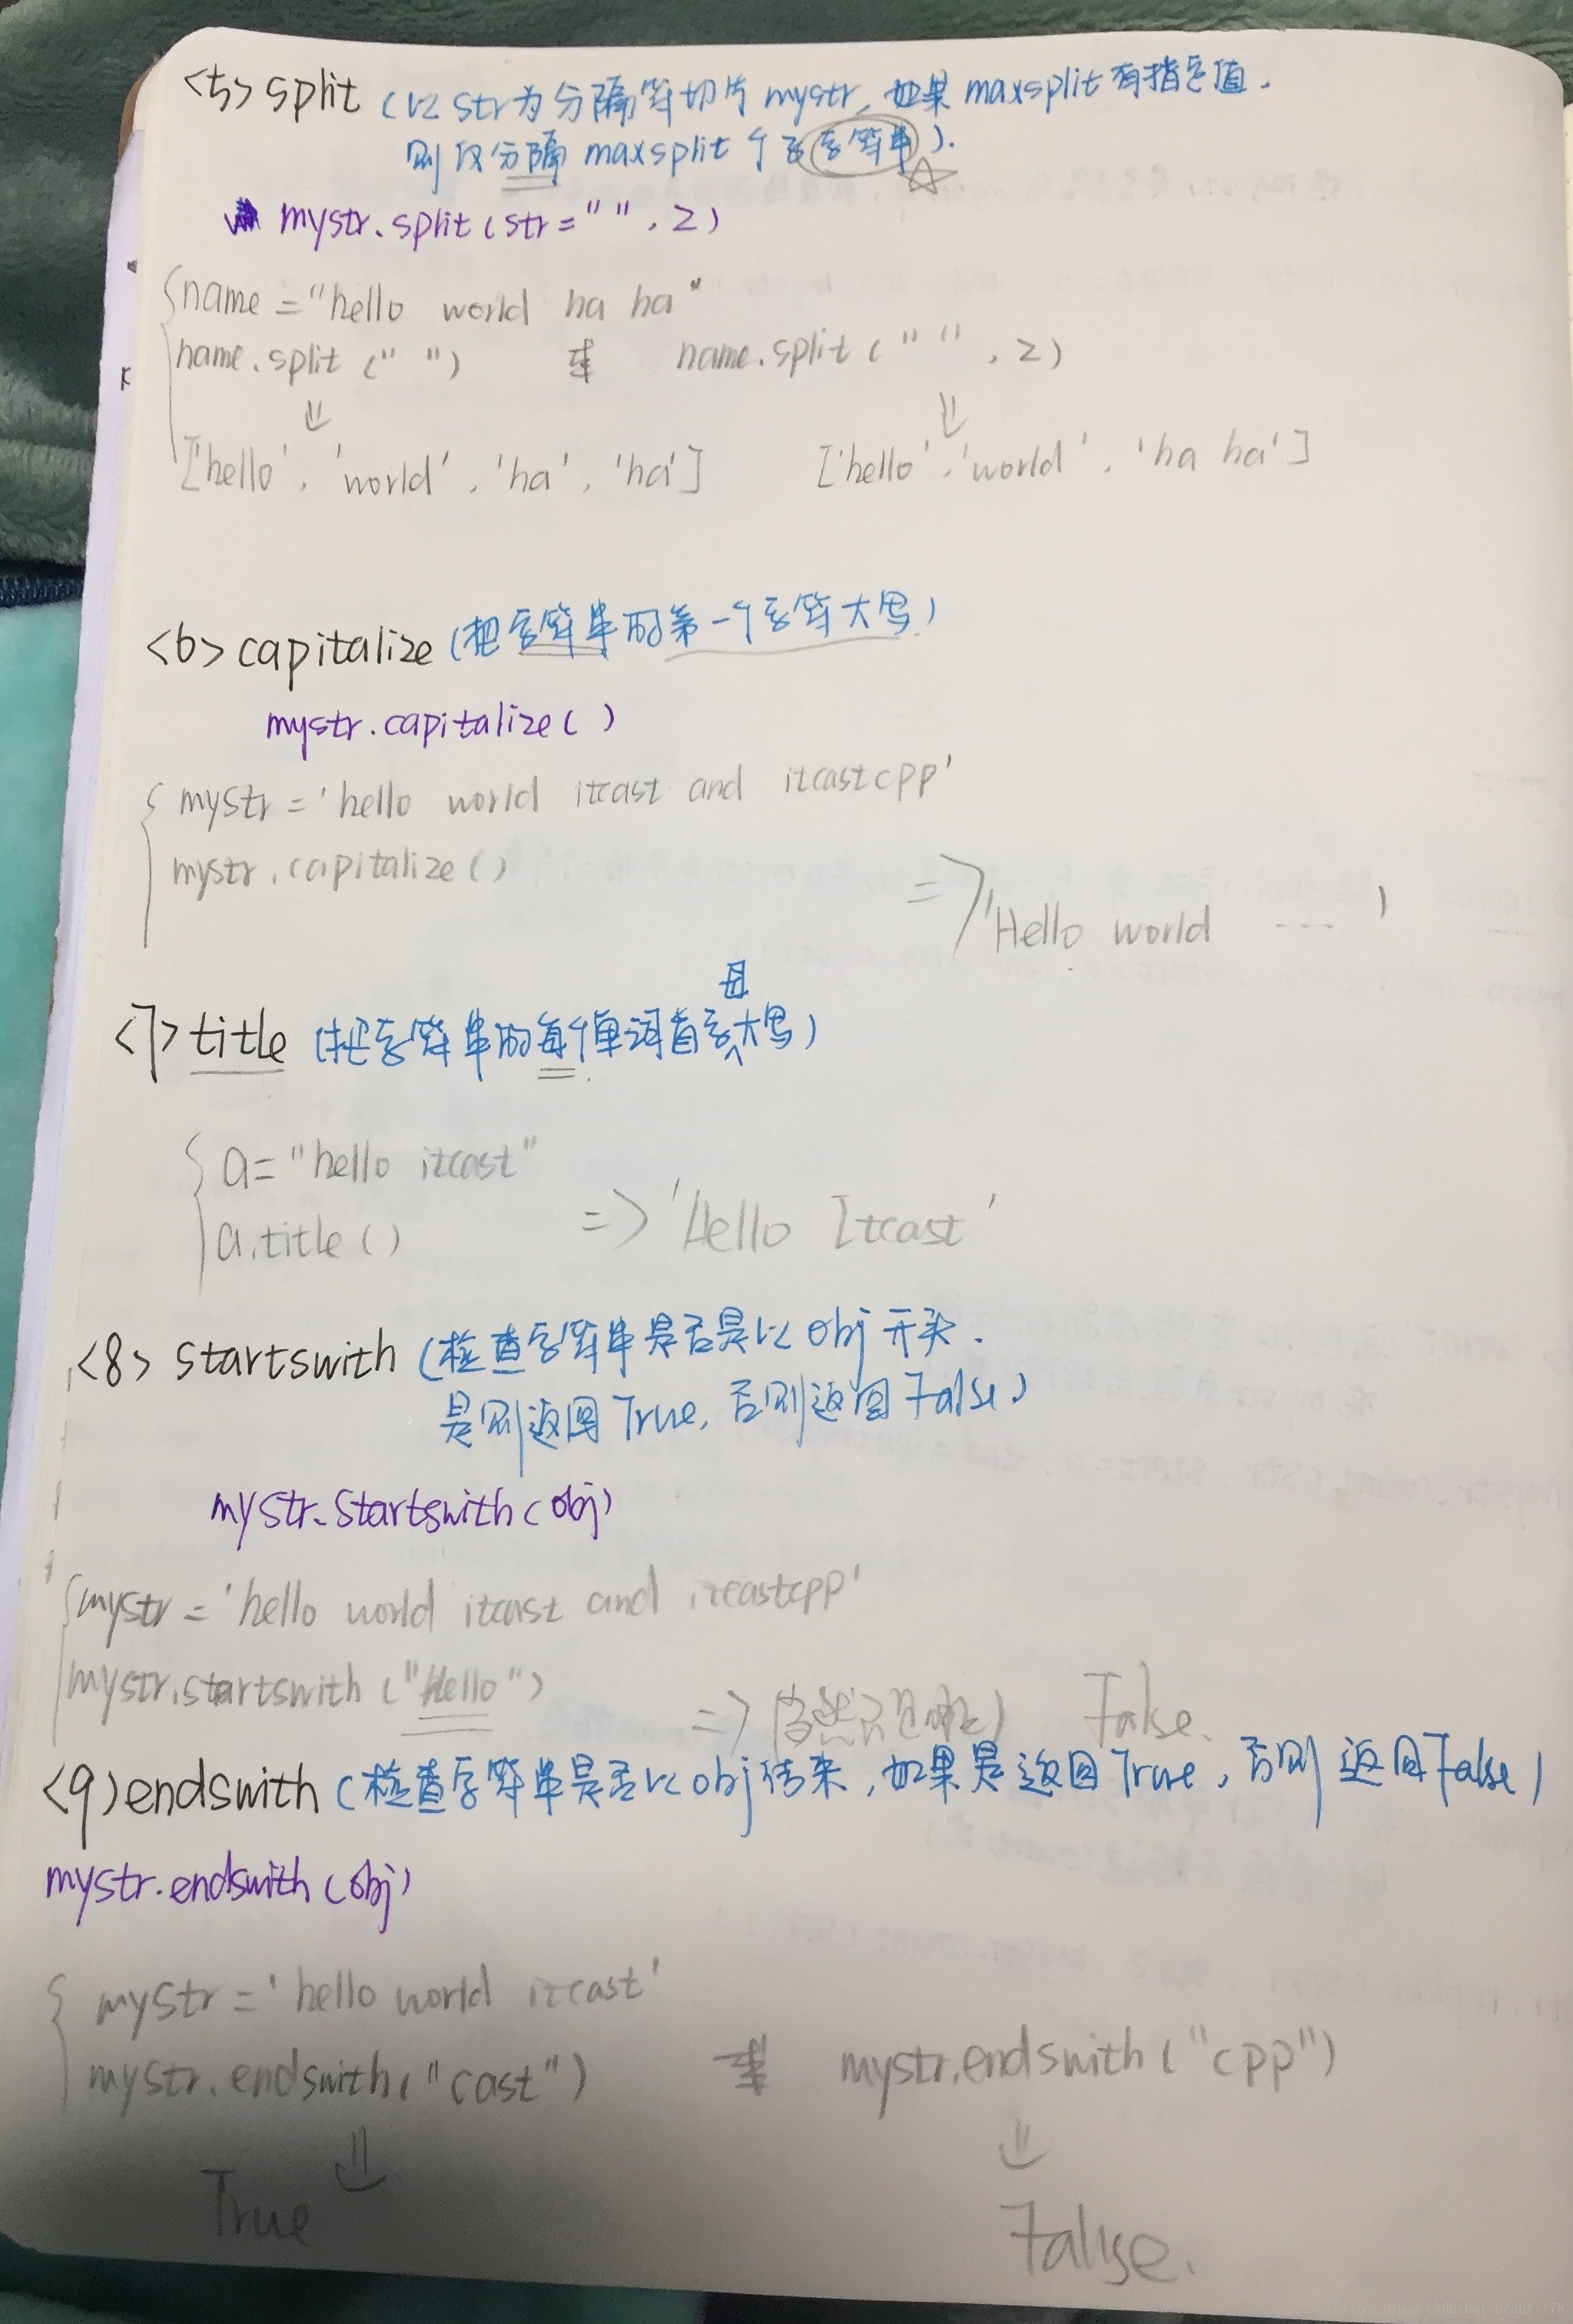 <5> split (以 str 为分隔符切片 mystr, 如果 maxsplit 有指定值.
则仅分隔 maxsplit 个子字符串).
mystr.split(str=" ", 2)
name = "hello world ha ha"
name.split(" ") name.split(" ", 2)
['hello', 'world', 'ha', 'ha'] ['hello', 'world', 'ha ha']
<6> capitalize (把字符串的第一个字符大写)
mystr.capitalize( )
mystr = 'hello world itcast and itcastcpp'
mystr.capitalize( )
=> 'Hello world ---- '
<7> title (把字符串的每个单词首字母大写)
a = "hello itcast"
a.title( ) => 'Hello Itcast'
<8> startswith (检查字符串是否是以 obj 开头.
是则返回 True, 否则返回 False)
mystr.startswith(obj)
mystr = 'hello world itcast and itcastcpp'
mystr.startswith("Hello") => False.
<9) endswith (检查字符串是否以 obj 结束, 如果是返回 True, 否则 返回 False)
mystr.endswith(obj)
mystr = 'hello world itcast'
mystr.endswith("cast") mystr.endswith("cpp")
True False.